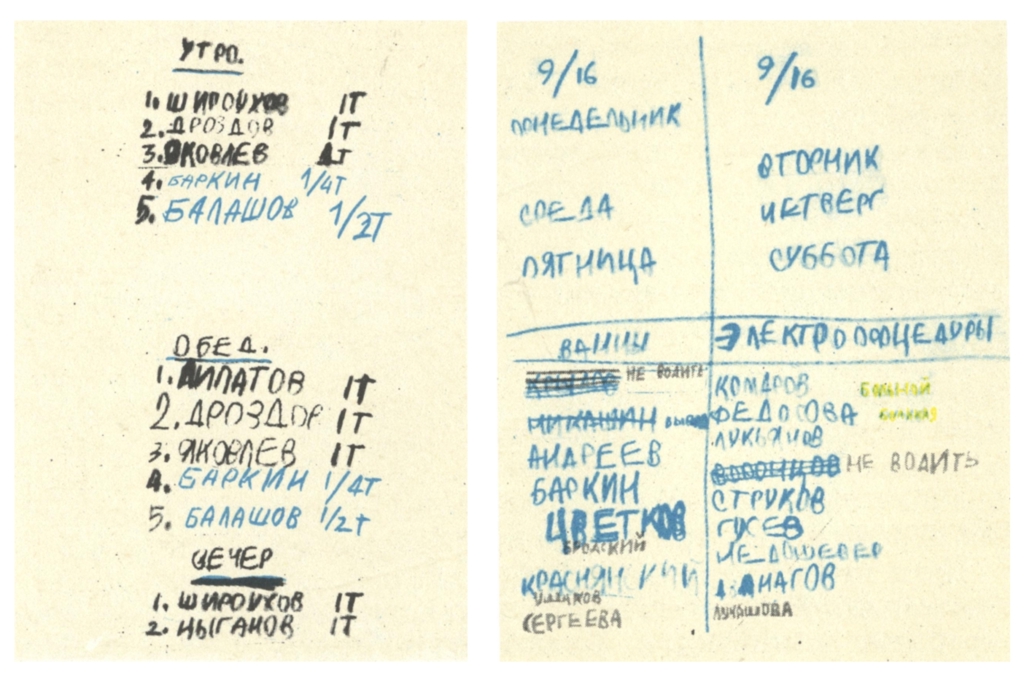 УТРО.
1. ШИРОУХОВ 1Т
2. ДРОЗДОВ 1Т
3. ЯКОВЛЕВ 1Т
4. БАРКИН 1/4Т
5. БАЛАШОВ 1/2Т
ОБЕД.
1. ЛИПАТОВ 1Т
2. ДРОЗДОВ 1Т
3. ЯКОВЛЕВ 1Т
4. БАРКИН 1/4Т
5. БАЛАШОВ 1/2Т
ВЕЧЕР
1. ШИРОУХОВ 1Т
2. ЦЫГАНОВ 1Т
9/16
ПОНЕДЕЛЬНИК
СРЕДА
ПЯТНИЦА
ВАННЫ
НЕ ВОДИТЬ
МИКАШИН
АНДРЕЕВ
БАРКИН
ЦВЕТКОВ
БРОДСКИЙ
КРАСНЯНСКИЙ
УШАКОВ
СЕРГЕЕВА
9/16
ВТОРНИК
ЧЕТВЕРГ
СУББОТА
ЭЛЕКТРОПРОЦЕДУРЫ
КОМАРОВ БОЛЬНОЙ
ФЕДОСОВА БОЛЬНАЯ
ЛУКЬЯНОВ
ВОРОНЦОВ НЕ ВОДИТЬ
СТРУКОВ
ГУСЕВ
МАНАГОВ
ЛУКАШОВА